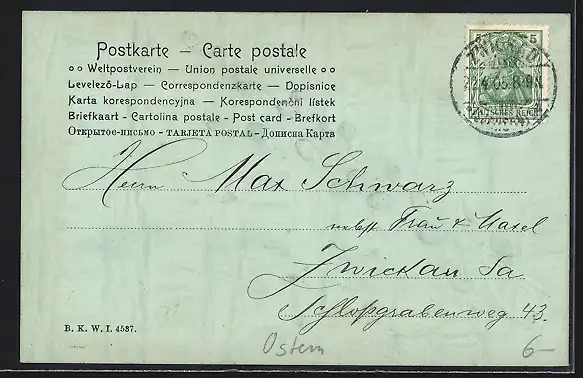 Postkarte — Carte postale
Weltpostverein — Union postale universelle
Levelező-Lap — Correspondenzkarte — Dopisnice
Karta korespondencyjna — Korespondenční lístek
Briefkaart - Cartolina postale - Post card - Brefkort
Открытое-письмо - TARJETA POSTAL - Дописна Карта
5 5
DEUTSCHES REICH
Herrn Max Schwarz
nebst Frau &
Zwickau Sa
Schloßgrabenweg 43.
B. K. W. I. 4537.
Ostern
6-